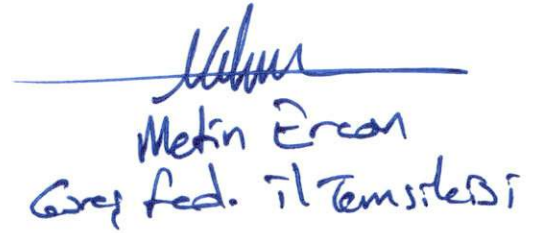 Metin Ercan
Güreş Fed. İl Temsilcisi